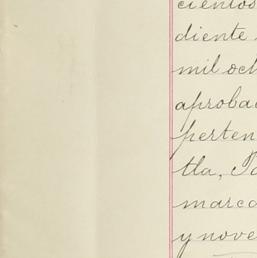 cientos
diente
mil och
aproba
perten
tla, Ta
marca
y nove